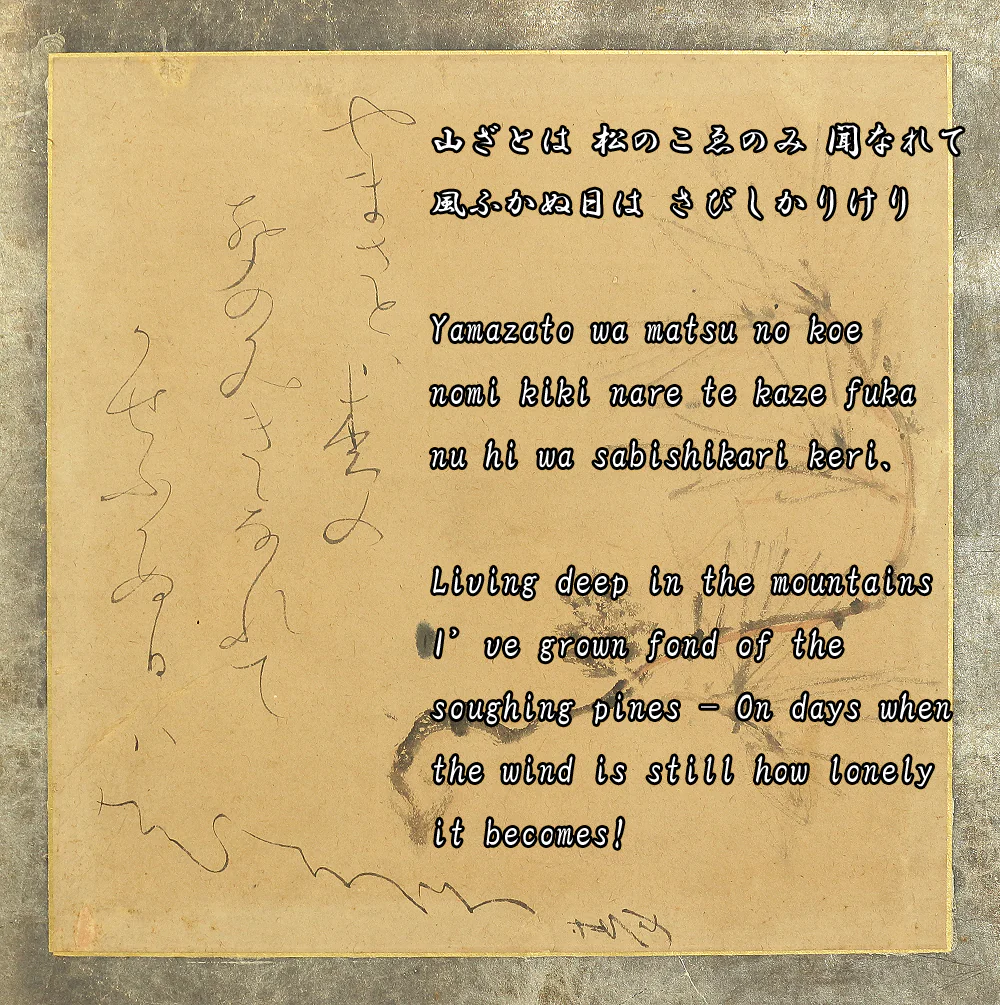 山ざとは 松のこゑのみ 聞なれて
風ふかぬ目は さびしかりけり
Yamazato wa matsu no koe
nomi kiki nare te kaze fuka
nu hi wa sabishikari keri、
Living deep in the mountains
I’ve grown fond of the
soughing pines – On days when
the wind is still how lonely
it becomes!
やまさとハ 枩の
こゑのみきゝなれて
かせふかぬ日ハ